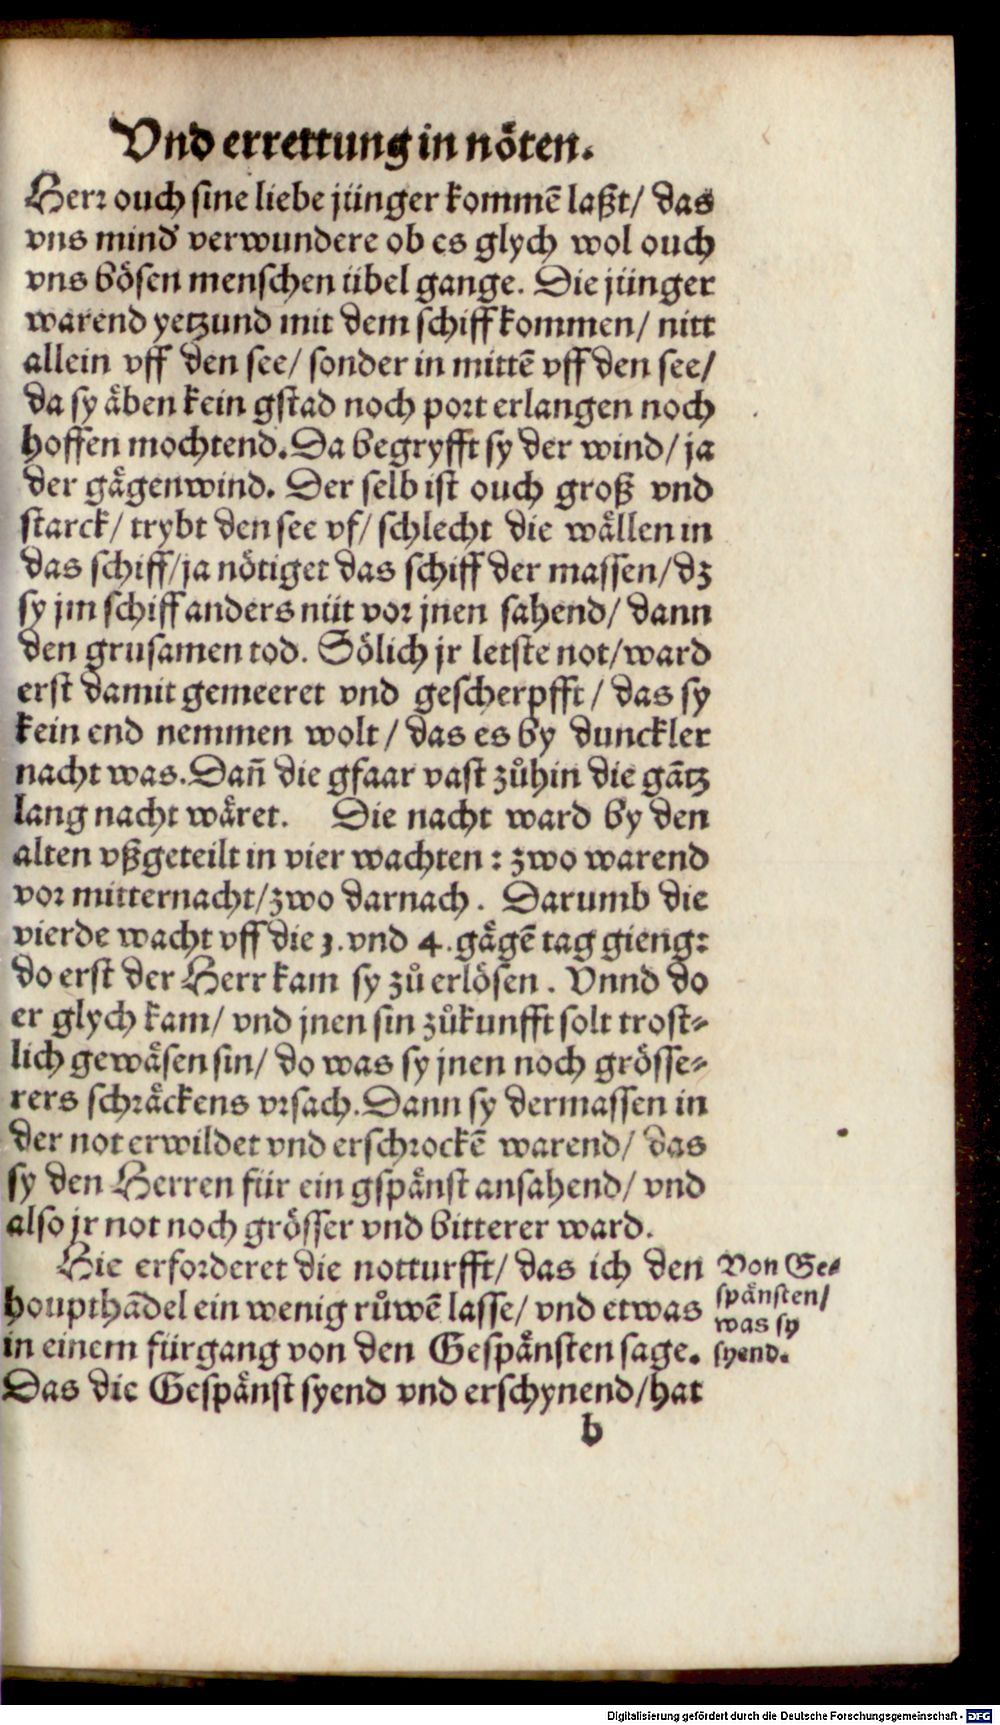 Vnd errettung in nöten.
Herr ouch sine liebe jünger kommē laßt/ das
vns mind verwundere ob es glych wol ouch
vns bösen menschen übel gange. Die jünger
warend yetzund mit dem schiff kommen/ nitt
allein vff den see/ sonder in mittē vff den see/
da sy äben kein gstad noch port erlangen noch
hoffen mochtend. Da begryfft sy der wind/ ja
der gägenwind. Der selb ist ouch groß vnd
starck/ trybt den see vf/ schlecht die wällen in
das schiff/ ja nötiget das schiff der massen/ dz
sy jm schiff anders nüt vor jnen sahend/ dann
den grusamen tod. Sölich jr letste not/ ward
erst damit gemeeret vnd gescherpfft/ das sy
kein end nemmen wolt/ das es by dunckler
nacht was. Dañ die gfaar vast zůhin die gātz
lang nacht wäret. Die nacht ward by den
alten vßgeteilt in vier wachten: zwo warend
vor mitternacht/ zwo darnach. Darumb die
vierde wacht vff die 3. vnd 4. gägē tag gieng:
do erst der Herr kam sy zů erlösen. Vnnd do
er glych kam/ vnd jnen sin zůkunfft solt trost⸗
lich gewäsen sin/ do was sy jnen noch grösse⸗
rers schräckens vrsach. Dann sy dermassen in
der not erwildet vnd erschrockē warend/ das
sy den Herren für ein gspänst ansahend/ vnd
also jr not noch grösser vnd bitterer ward.
Hie erforderet die notturfft/ das ich den
houpthādel ein wenig růwē lasse/ vnd etwas
in einem fürgang von den Gespänsten sage.
Das die Gespänst syend vnd erschynend/ hat
Von Ge⸗
spänsten/
was sy
syend.
b
Digitalisierung gefördert durch die Deutsche Forschungsgemeinschaft - DFG